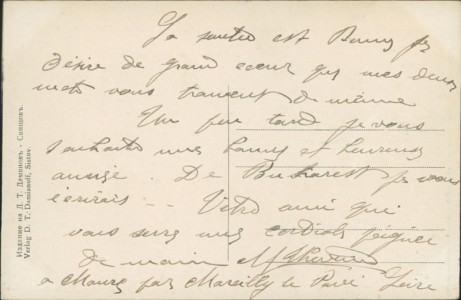 La santé est Bonne je
désire de grand coeur que mes deux
mots vous trouvent de même
Un peu tard je vous
souhaite une bonne et heureuse
année. De Bucharest je vous
écrirais -- Votre ami qui
vous serre une cordiale poignée
de main
a par Marcilly le Pavé Loire
Издание на Д. Т. Демяновъ - Свищовъ.
Verlag D. T. Demianoff, Sistov.